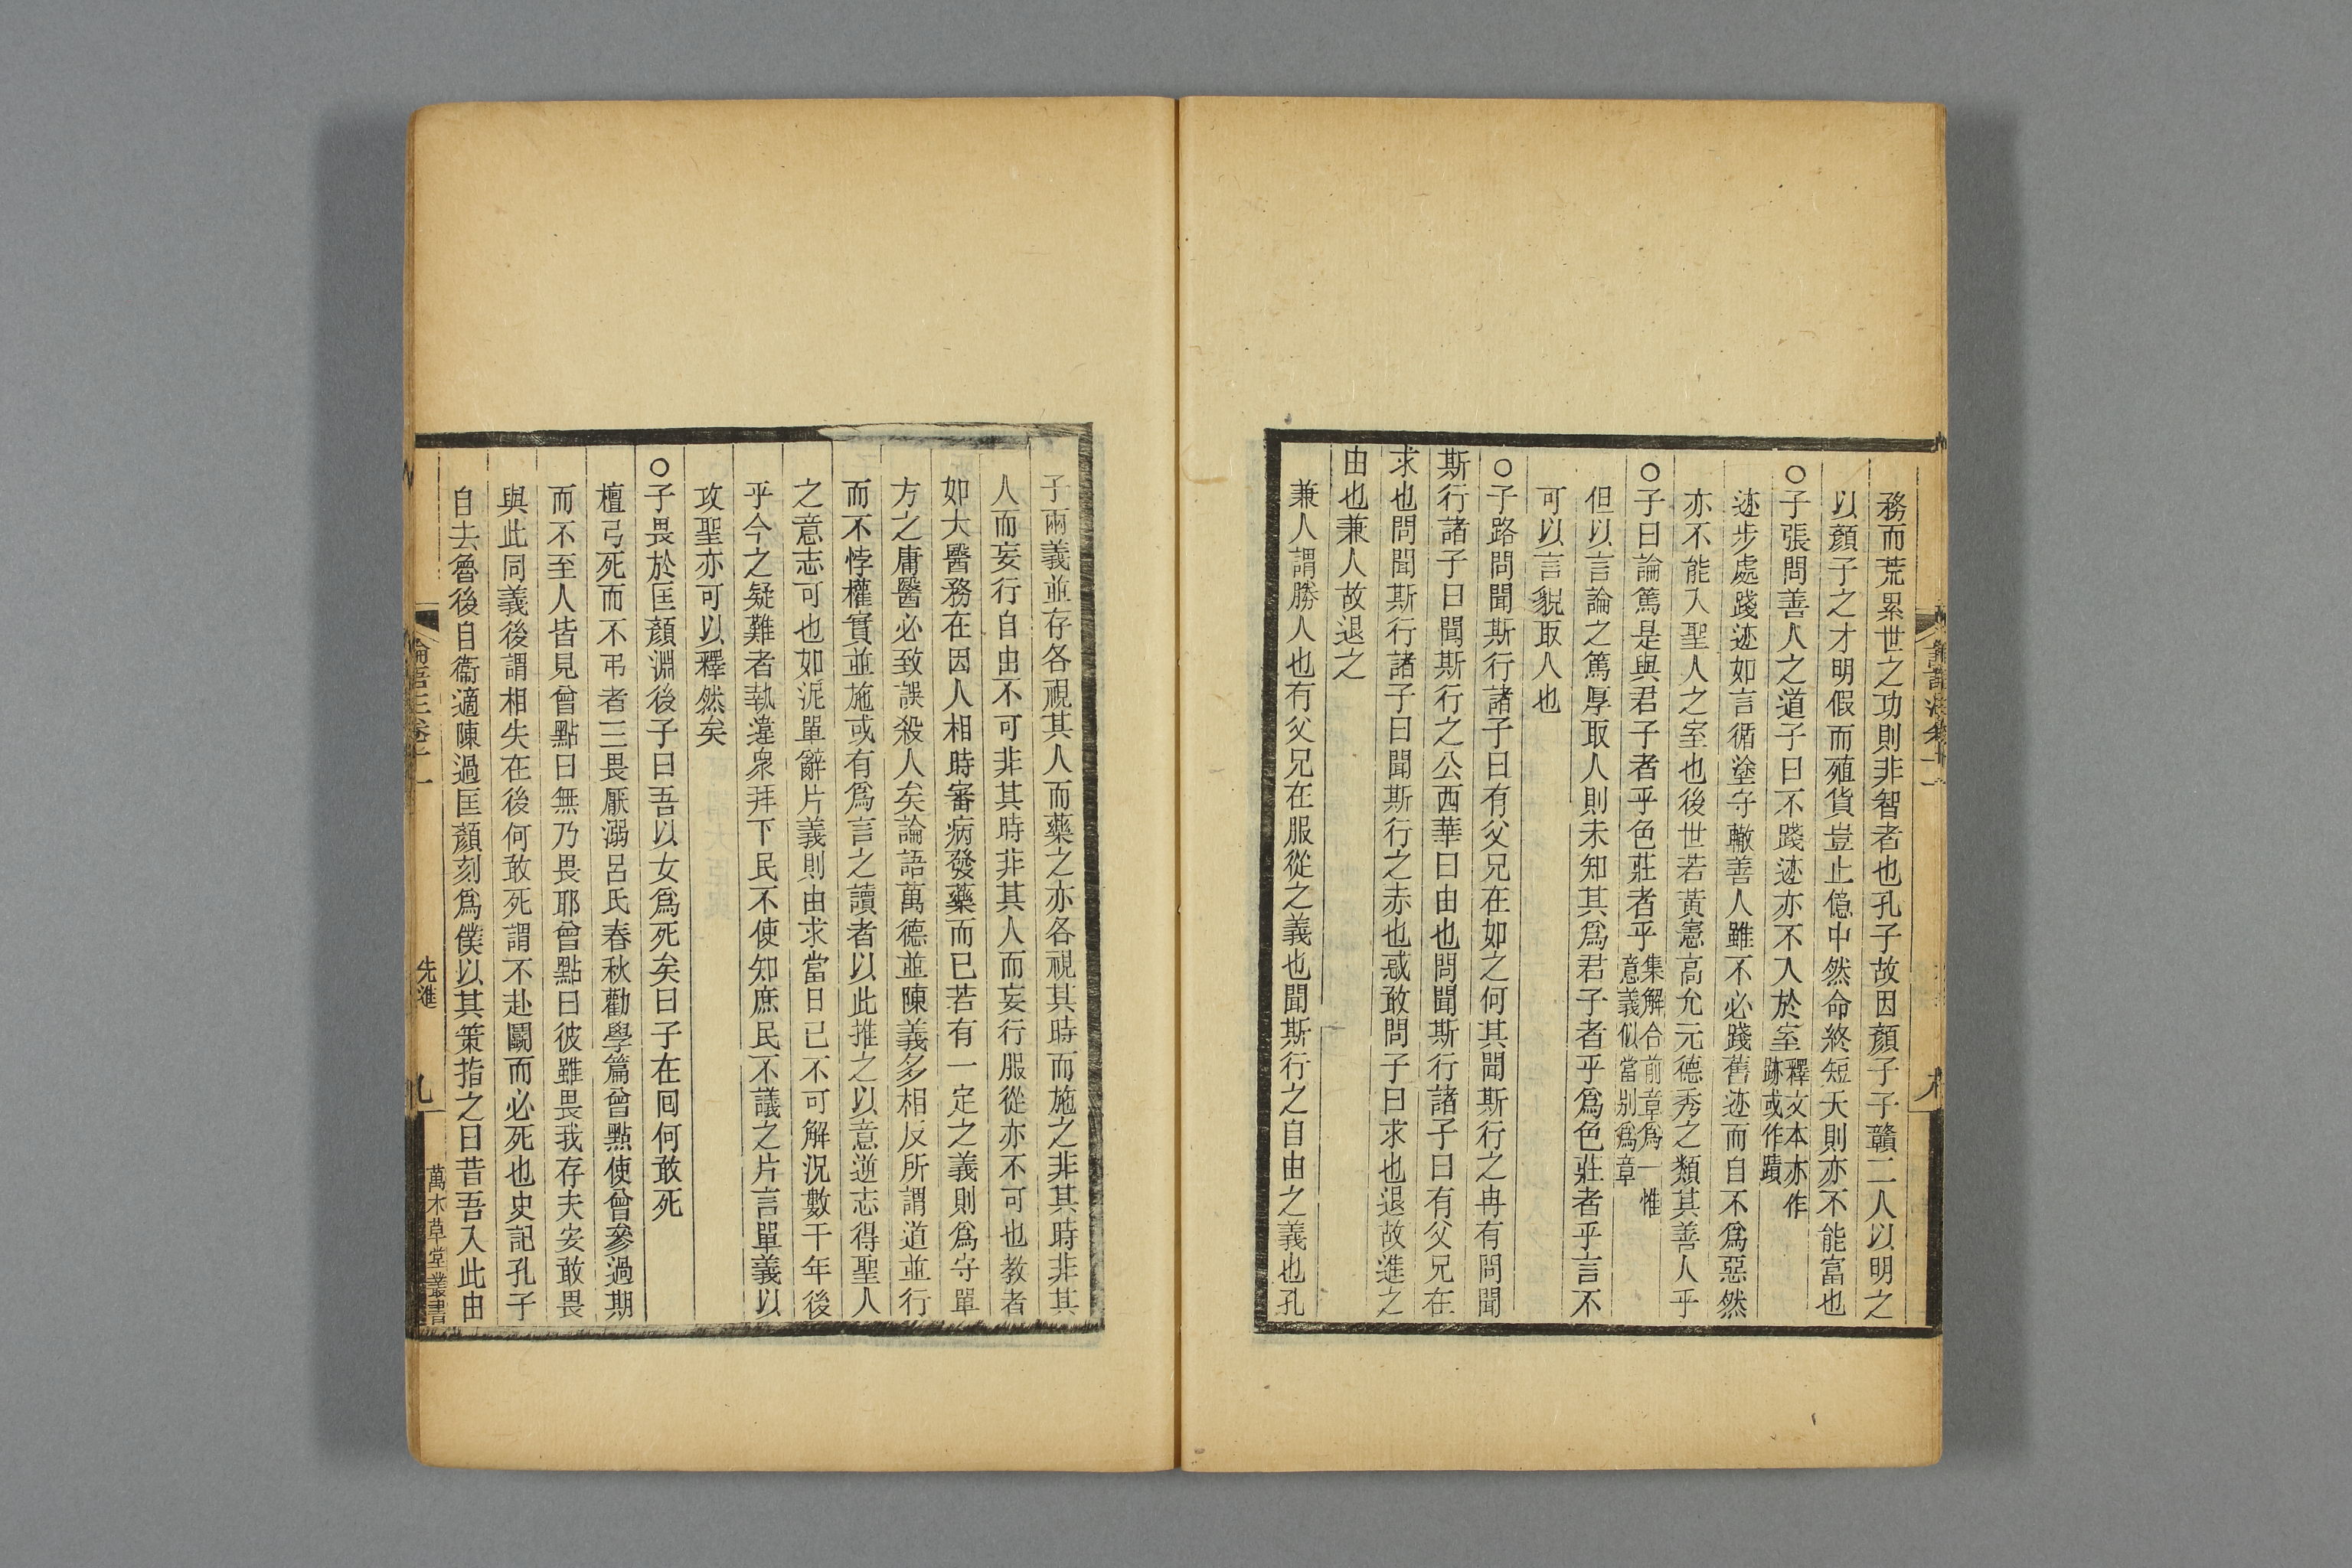 務而荒累世之功則非智者也孔子故因顏子子贛二人以明之
以顏子之才明假而殖貨豈止億中然命終短夭則亦不能富也
○子張問善人之道子曰不踐迹亦不入於室釋文本亦作跡或作蹟
迹步處踐迹如言循塗守轍善人雖不必踐舊迹而自不為惡然
亦不能入聖人之室也後世若黃憲高允元德秀之類其善人乎
○子曰論篤是與君子者乎色莊者乎集解合前章為一惟意義似當別為章
但以言論之篤厚取人則未知其為君子者乎為色莊者乎言不
可以言貌取人也
○子路問聞斯行諸子曰有父兄在如之何其聞斯行之冉有問聞
斯行諸子曰聞斯行之公西華曰由也問聞斯行諸子曰有父兄在
求也問聞斯行諸子曰聞斯行之赤也惑敢問子曰求也退故進之
由也兼人故退之
兼人謂勝人也有父兄在服從之義也聞斯行之自由之義也孔
子兩義並存各視其人而藥之亦各視其時而施之非其時非其
人而妄行自由不可非其時非其人而妄行服從亦不可也教者
如大醫務在因人相時審病發藥而已若有一定之義則為守單
方之庸醫必致誤殺人矣論語萬德並陳義多相反所謂道並行
而不悖權實並施或有為言之讀者以此推之以意逆志得聖人
之意志可也如泥單辭片義則由求當日已不可解況數千年後
乎今之疑難者執違眾拜下民不使知庶民不議之片言單義以
攻聖亦可以釋然矣
○子畏於匡顏淵後子曰吾以女為死矣曰子在回何敢死
檀弓死而不弔者三畏厭溺呂氏春秋勸學篇曾點使曾參過期
而不至人皆見曾點曰無乃畏耶曾點曰彼雖畏我存夫安敢畏
與此同義後謂相失在後何敢死謂不赴鬬而必死也史記孔子
自去魯後自衞適陳過匡顏刻為僕以其策指之曰昔吾入此由
先進
九
萬木草堂叢書